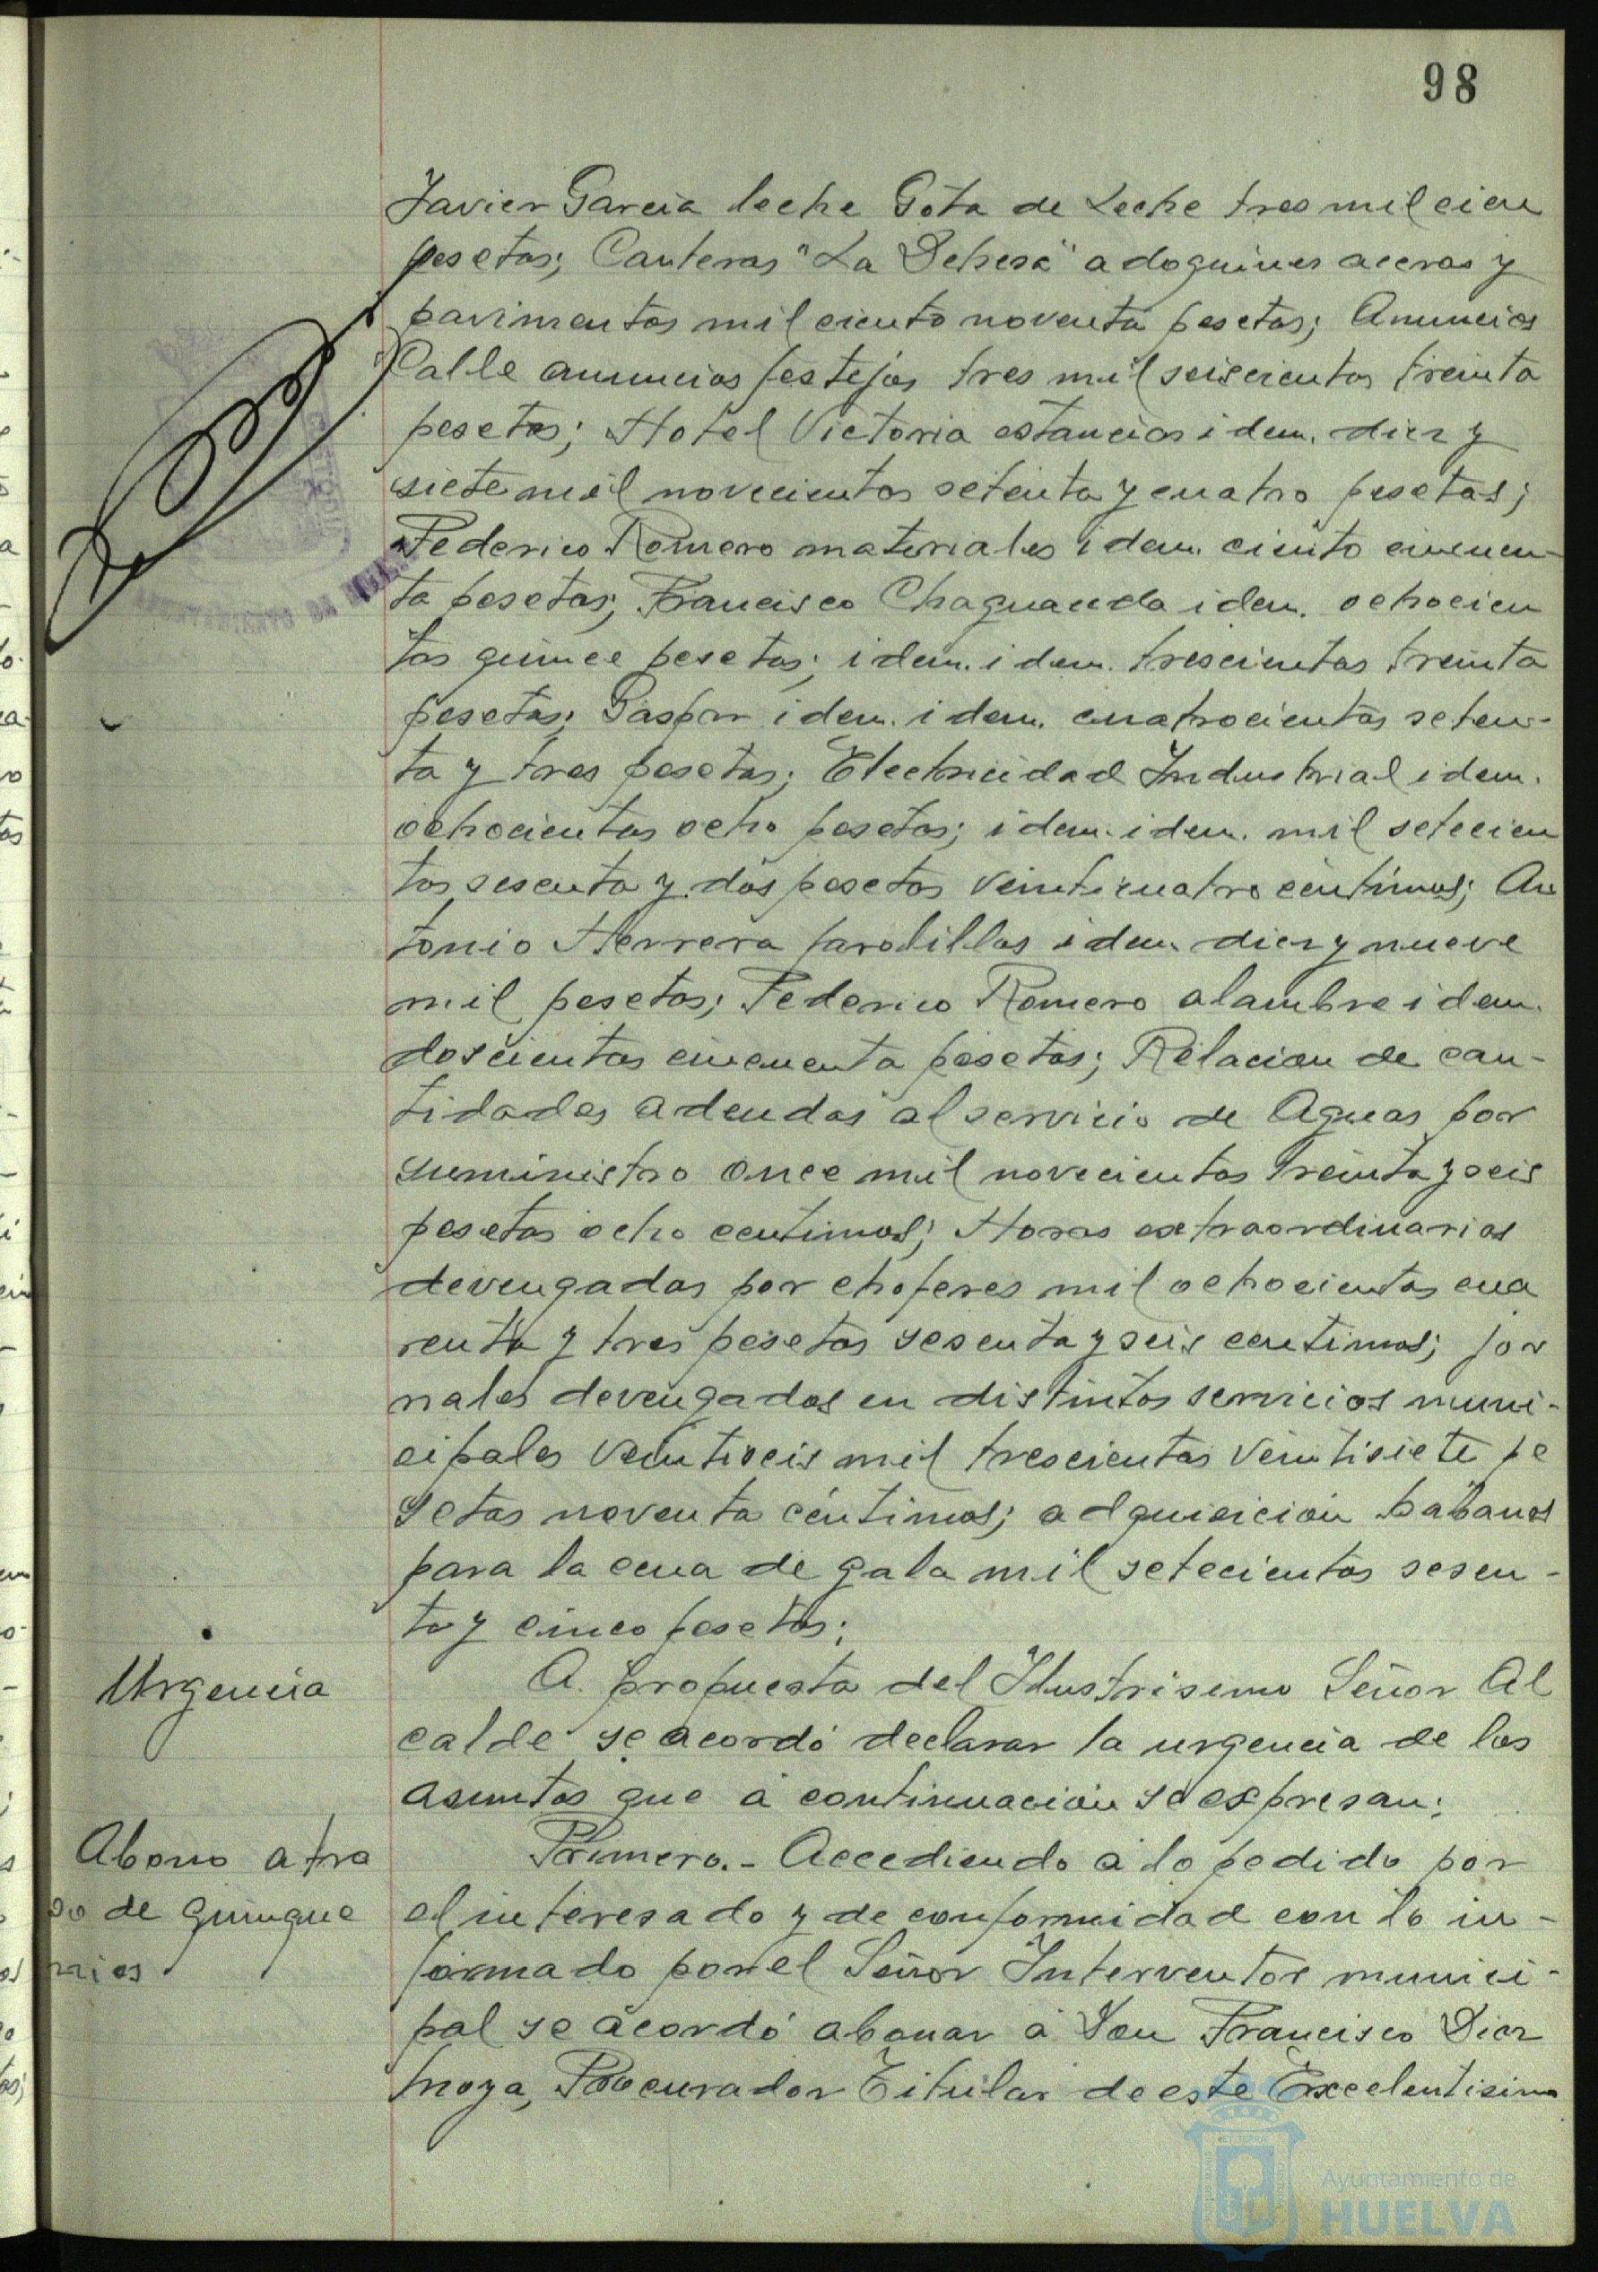 98
Javier Garcia leche Gota de Leche tres mil cien
pesetas; Canteras "La Dehesa" adoquines aceras y
pavimentos mil ciento noventa pesetas; Anuncios
Calle anuncios festejos tres mil seiscientas treinta
pesetas; Hotel Victoria estancias idem. diez y
siete mil novecientas setenta y cuatro pesetas;
Federico Romero materiales idem. ciento cincuen-
ta pesetas; Francisco Chaguaceda idem. ochocien
tas quince pesetas; idem. idem. trescientas treinta
pesetas; Gaspar idem. idem. cuatrocientas seten-
ta y tres pesetas; Electricidad Industrial idem.
ochocientas ocho pesetas; idem. idem. mil setecien
tas sesenta y dos pesetas veinticuatro céntimos; An
tonio Herrera farolillos idem. diez y nueve
mil pesetas; Federico Romero alambre idem.
doscientas cincuenta pesetas; Relacion de can-
tidades adeudas al servicio de Aguas por
suministro once mil novecientas treinta y seis
pesetas ocho centimos; Horas extraordinarias
devengadas por choferes mil ochocientas cua
renta y tres pesetas sesenta y seis centimos; jor
nales devengados en distintos servicios muni-
cipales veintiseis mil trescientas veintisiete pe
setas noventa céntimos; adquisicion habanos
para la cena de gala mil setecientas sesen-
ta y cinco pesetas;
Urgencia
A. propuesta del Ilustrisimo Señor Al
calde se acordó declarar la urgencia de los
asuntos que a continuación se expresan:
Abono atra
so de quinque
nios
Primero.- Accediendo a lo pedido por
el interesado y de conformidad con lo in-
formado por el Señor Interventor munici-
pal se acordó abonar a Don Francisco Diaz
Moya, Procurador Titular de este Excelentisimo
Ayuntamiento de
HUELVA